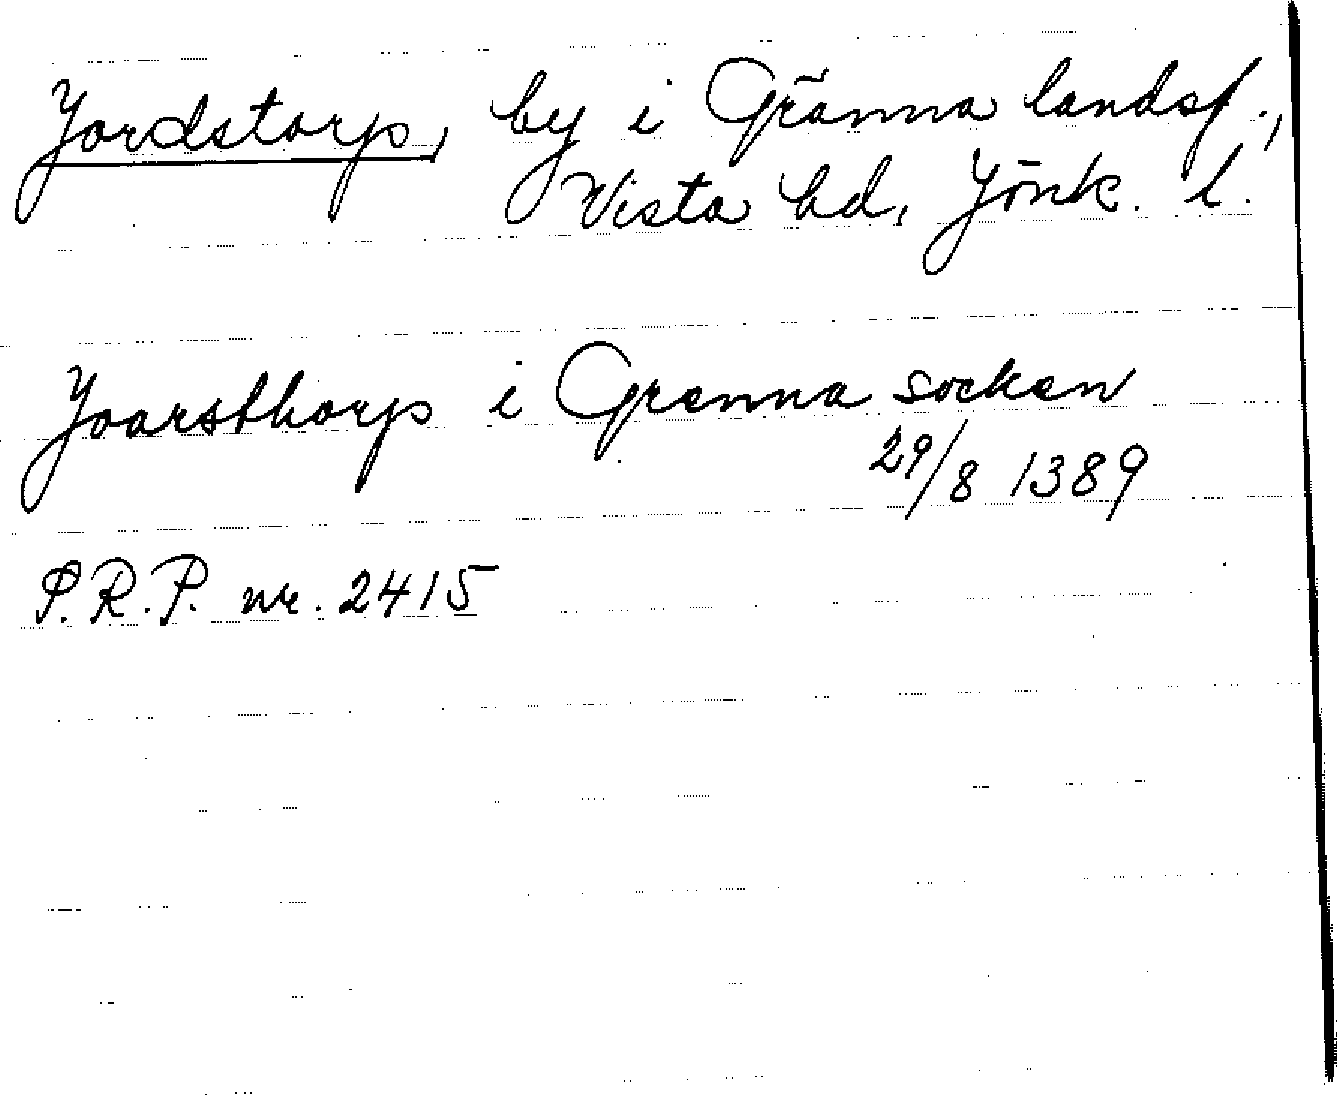 Jordstorp, by i Gränna landsf.,
Vista hd, Jönk. l.
Joarsthorp i Grenna socken
29/8 1389
P.R.P. nr. 2415